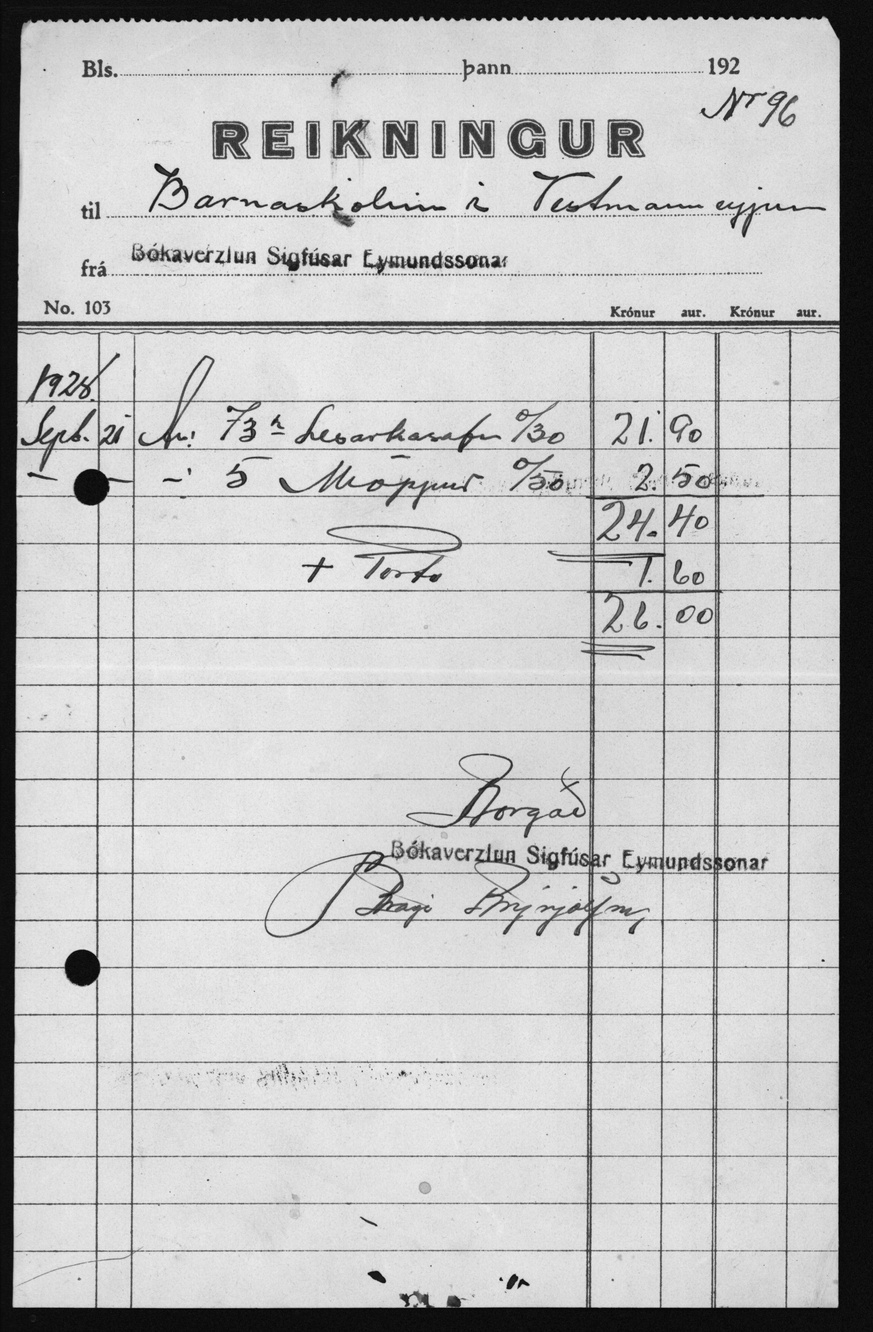 Bls. þann 192
Nr 96
REIKNINGUR
til Barnaskolinn i Vestmannaeyjum
frá Bókaverzlun Sigfúsar Eymundssonar
No. 103 Krónur aur. Krónur aur.
1928
Sept. 21 73 Lesarkasafn 0/30 21. 90
— — — 5 Möppur 0/50 2. 50
24. 40
+ Porto 1. 60
26. 00
Borgað
Bókaverzlun Sigfúsar Eymundssonar
Bragi Brynjólfsson